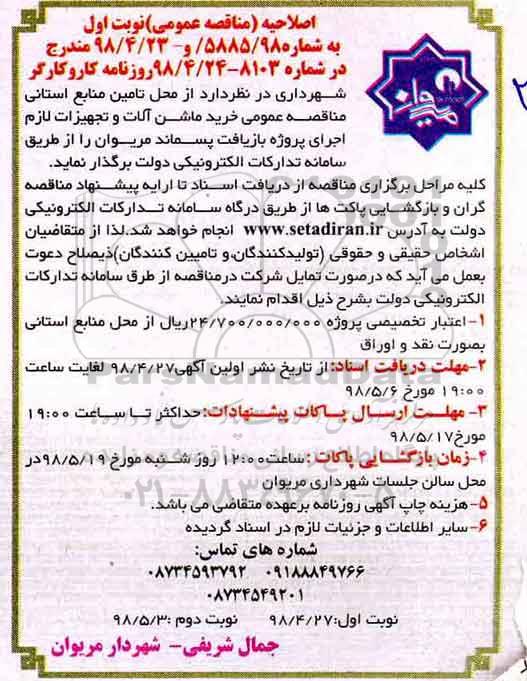 اصلاحیه (مناقصه عمومی)نوبت اول
به شماره۵۸۸۵/۹۸/ و- ۹۸/۴/۲۳ مندرج
در شماره ۸۱۰۳-۹۸/۴/۲۴روزنامه کاروکارگر
شهرداری در نظردارد از محل تامین منابع استانی
مناقصه عمومی خرید ماشن آلات و تجهیزات لازم
اجرای پروژه بازیافت پسماند مریوان را از طریق
سامانه تدارکات الکترونیکی دولت برگذار نماید.
کلیه مراحل برگزاری مناقصه از دریافت اسناد تا ارایه پیشنهاد مناقصه
گران و بازگشایی پاکت ها از طریق درگاه سامانه تدارکات الکترونیکی
دولت به آدرس www.setadiran.ir انجام خواهد شد.لذا از متقاضیان
اشخاص حقیقی و حقوقی (تولیدکنندگان،و تامیین کنندگان)ذیصلاح دعوت
بعمل می آید که درصورت تمایل شرکت درمناقصه از طرق سامانه تدارکات
الکترونیکی دولت بشرح ذیل اقدام نمایند.
۱-اعتبار تخصیصی پروژه ۲۴/۷۰۰/۰۰۰/۰۰۰ریال از محل منابع استانی
بصورت نقد و اوراق
۲-مهلت دریافت اسناد:از تاریخ نشر اولین آگهی۹۸/۴/۲۷ لغایت ساعت
۱۹:۰۰ مورخ ۹۸/۵/۶
۳- مهلت ارسال پاکات پیشنهادات:حداکثر تا ساعت ۱۹:۰۰
مورخ۹۸/۵/۱۷
۴-زمان بازگشایی پاکات :ساعت۱۲:۰۰ روز شنبه مورخ ۹۸/۵/۱۹در
محل سالن جلسات شهرداری مریوان
۵- هزینه چاپ آگهی روزنامه برعهده متقاضی می باشد.
۶-سایر اطلاعات و جزئیات لازم در اسناد گردیده
شماره های تماس:
۰۹۱۸۸۸۴۹۷۶۶ ۰۸۷۳۴۵۹۳۷۹۲
۰۸۷۳۴۵۴۹۲۰۱
نوبت اول:۹۸/۴/۲۷ نوبت دوم :۹۸/۵/۳
جمال شریفی- شهردار مریوان
ParsNamadData